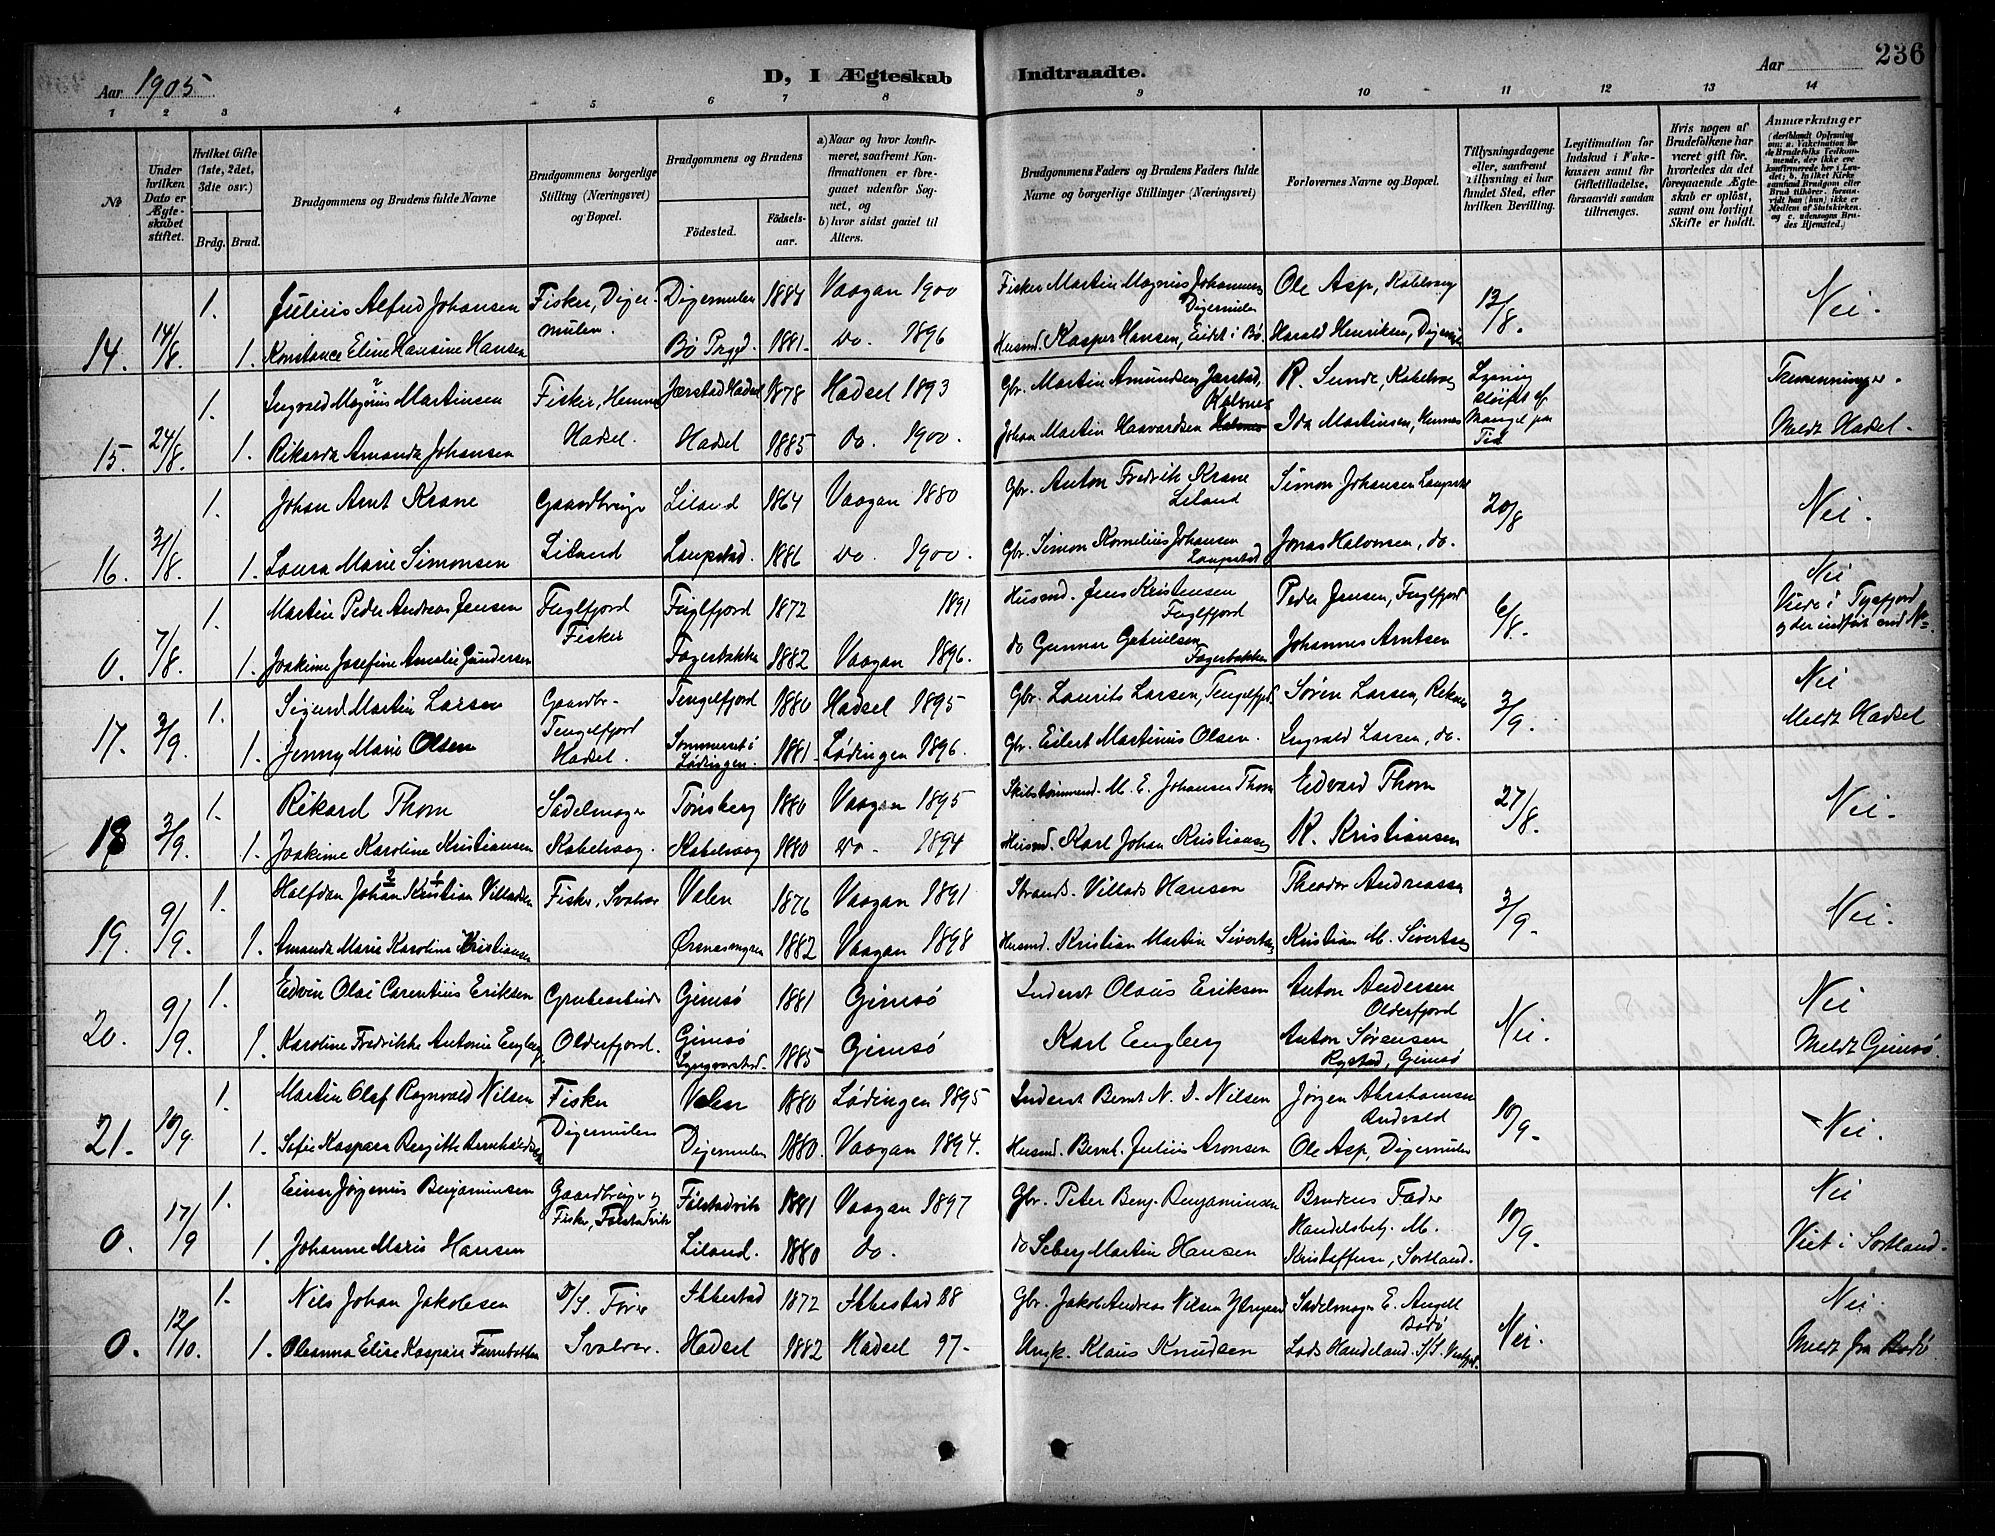 Aar 1905
D, I Ægteskab
Indtraadte.
Aar
236
1 2 3 4 5 6 7 8 9 10 11 12 13 14
№
Under hvilken Dato er Ægteskabet stiftet.
Hvilket Gifte (1ste, 2det, 3dte osv.)
Brdg. Brud.
Brudgommens og Brudens fulde Navne
Brudgommens borgerlige Stilling (Næringsvei) og Bopæl.
Brudgommens og Brudens
Födested.
Födselsaar.
a) Naar og hvor konfirmeret, saafremt Konfirmationen er foregaaet udenfor Sognet, og
b) hvor sidst gaaet til Alters.
Brudgommens Faders og Brudens Faders fulde Navne og borgerlige Stillinger (Næringsvei)
Forlovernes Navne og Bopæl.
Tillysningsdagene eller, saafremt Tillysning ei har fundet Sted, efter hvilken Bevilling.
Legitimation for Indskud i Enkekassen samt for Giftetilladelse, forsaavidt saadan tiltrænges.
Hvis nogen af Brudefolkene har været gift för, hvorledes da det foregaaende Ægteskab er oplöst, samt om lovligt Skifte er holdt.
Anmærkninger
14. 14/8. 1. Julius Alfred Johansen Fisker, Digermulen. Digermulen 1884 Vaagan 1900 Fisker Martin Magnus Johannessen Digermulen Ole Asp, Kabelvaag 13/8. Nei.
1. Konstance Eline Hansine Hansen Bø Prgd. 1881. do. 1896 Husmd. Kasper Hansen, Eidet i Bø. Harald Henriksen, Digermulen
15. 24/8. 1. Ingvald Magnus Martinsen Fisker, Hennes Hadsel. Jørstad Hadsel 1878 Hadsel 1893 Gbr. Martin Amundsen Jørstad, R. Sunde, Kabelvaag Lysning sløifet af Mangel paa Tid
1. Rikarda Amanda Johansen Hadsel 1885 do. 1900. Johan Martin Haavardsen Ida Martinsen, Hennes Meldt Hadsel.
16. 31/8. 1. Johan Arnt Krane Gaardbruger Liland Liland 1864 Vaagan 1880 Gbr. Anton Fredrik Krane Liland Simon Johansen Laupstad 20/8 Nei.
1. Laura Marie Simonsen Laupstad. 1886 do. 1900. Gbr. Simon Kornelius Johansen Laupstad Jonas Halvorsen, do.
0. 7/8. 1. Martin Peder Andreas Jensen Fuglfjord Fisker Fuglfjord 1872 1891 Husmd. Jens Kristensen Fuglfjord Peder Jensen, Fuglfjord 6/8. Nei
1. Joakime Josefine Amalie Gundersen Fagerbakke 1882 Vaagan 1896. do Gunnar Gabrielsen Fagerbakken Johannes Arntsen Viede i Tysfjord og der indført
17. 3/9. 1. Sigurd Martin Larsen Gaardbr. Tengelfjord Hadsel. Tengelfjord 1880 Hadsel 1895 Gbr. Laurits Larsen, Tengelfjord. Søren Larsen, 3/9. Nei
1. Jenny Marie Olsen Sommerset i Lødingen. 1881. Lødingen 1896. Gbr. Eilert Martinus Olsen. Ingvald Larsen, do. Meldt Hadsel
18 3/9. 1. Rikard Thom Sadelmager Kabelvaag. Tønsberg 1880 Vaagan 1895 Skibstømmermd. M. E. Johansen Thom Edvard Thom 27/8. Nei.
1. Joakime Karoline Kristiansen Kabelvaag 1880 do. 1894 Husmd. Karl Johan Kristiansen R. Kristiansen
19. 9/9. 1. Halfdan Johan Kristian Villadsen Fisker, Svolvær Valen 1876 Vaagan 1891 Strands. Villads Hansen Theodor Andreassen 3/9. Nei.
1. Amanda Marie Karoline Kristiansen Ørnesmyren 1882 Vaagan 1898 Husmd. Kristian Martin Sivertsen Kristian M. Sivertsen
20. 9/9. 1. Edvin Olai Carentius Eriksen Grubearbeider Olderfjord. Gimsö 1881 Gimsö Inderst Olaus Eriksen Anton Andersen Olderfjord Nei. Nei
1. Karoline Fredrikke Antonie Engberg Gimsö 1885 Gimsö Karl Engberg Anton Sørensen Rystad, Gimsö Meldt Gimsö.
21. 10/9. 1. Martin Olaf Ragnvald Nilsen Fisker Digermulen Valen 1880 Lødingen 1895 Inderst Bernt N. D. Nilsen Jørgen Abrahamsen 10/9. Nei.
1. Sofie Kaspara Bergitte Digermulen 1880. Vaagan 1894. Husmd. Bernt Julius Aronsen Ole Asp, Digermulen
0. 17/9 1. Einar Jørgenius Benjaminsen Gaardbruger og Fisker, Følstadvik Følstadvik 1881 Vaagan 1897 Gbr. Peter Benj. Benjaminsen Brudens Fader 10/9. Nei
1. Johanne Marie Hansen Liland. 1880 do. do Seberg Martin Hansen Handelsbetj. M. Kristoffersen, Sortland. Viet i Sortland.
0. 12/10. 1. Nils Johan Jakobsen D/S. Fører Svolvær. Ibbestad 1872 Ibbestad 88 Gbr. Jakob Andreas Nilsen Sadelmager E. Angell Bodø Nei. Nei.
1. Oleanna Elise Kaspara Furnbotten Hadsel 1882 Hadsel 97. Ungk. Klaus Knudsen Lods Handeland. Meldt fra Bodø